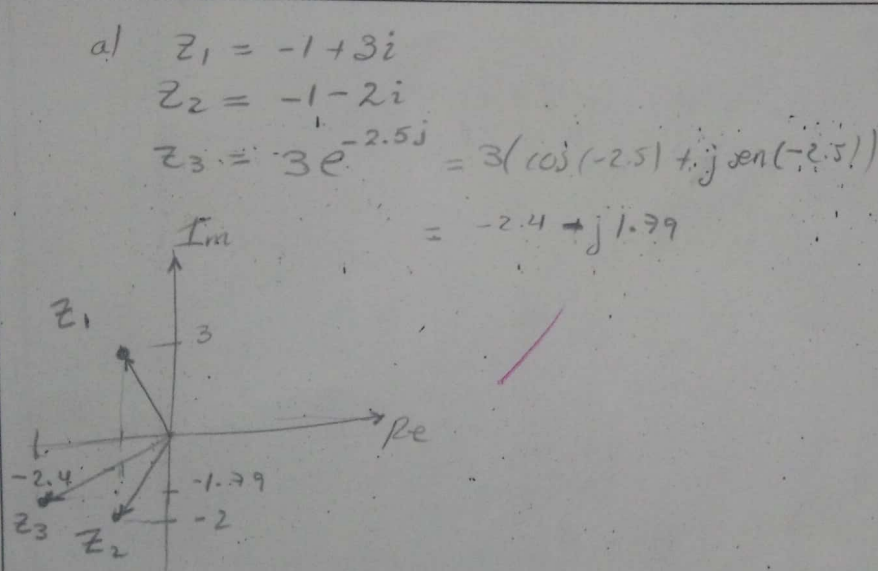 a) Z₁ = -1+3i
Z₂ = -1-2i
Z₃ = 3e^-2.5j = 3(cos(-2.5)+j sen(-2.5))
= -2.4 - j1.79
Im
Z₁
3
Re
-2.4
-1.79
-2
Z₃
Z₂